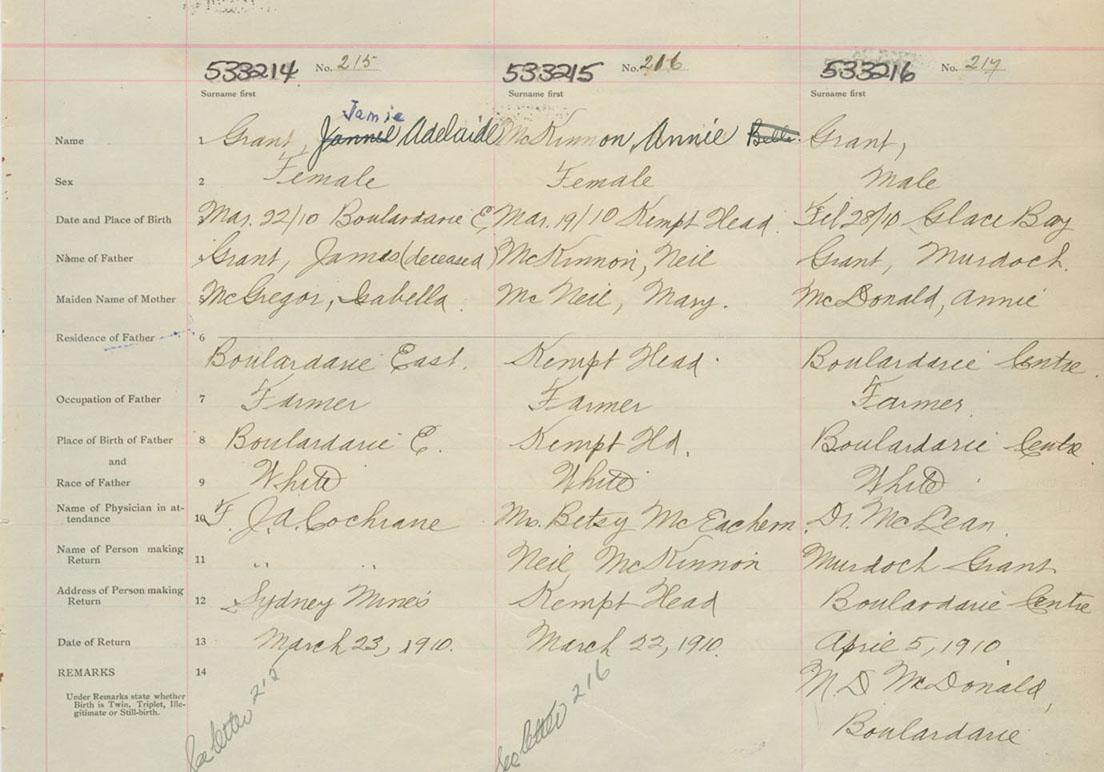 533214 No. 215 533215 No. 216 533216 No. 217
Surname first Surname first Surname first
Jamie
Name 1 Grant, Jannie Adelaide McKinnon, Annie Bella. Grant,
Sex 2 Female Female Male
Date and Place of Birth Mar. 22/10 Boulardarie E Mar. 19/10 Kempt Head. Feb 28/10 Glace Bay
Name of Father Grant, James (deceased) McKinnon, Neil Grant, Murdoch.
Maiden Name of Mother McGregor, Isabella. McNeil, Mary. McDonald, Annie
Residence of Father 6
Boulardarie East. Kempt Head. Boulardarie Centre.
Occupation of Father 7 Farmer Farmer Farmer.
Place of Birth of Father 8 Boulardarie E. Kempt Hd. Boulardarie Centre.
and
Race of Father 9 White White White
Name of Physician in at-
tendance 10 F. J.A. Cochrane Mrs. Betsy McEachern. Dr. McLean
Name of Person making
Return 11 " " Neil McKinnon Murdoch Grant
Address of Person making
Return 12 Sydney Mines Kempt Head Boulardarie Centre
Date of Return 13 March 23, 1910. March 22, 1910. April 5, 1910
REMARKS 14 N D McDonald,
Under Remarks state whether
Birth is Twin, Triplet, Ille-
gitimate or Still-birth.
Boulardarie
See letter 212
See letter 216